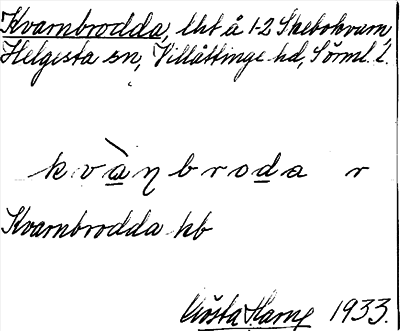 Kvarnbrodda, lht å 1-2 Skebokvarn,
Helgesta sn, Villåttinge hd, Sörml. l.
kvàŋbroda r
Kvarnbrodda hb
Gösta Harng 1933.